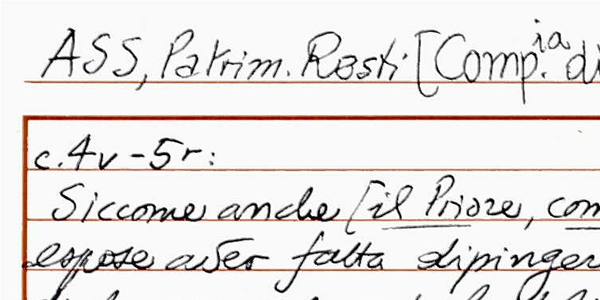 ASS, Patrim. Resti [Comp.ia di
c. 4v - 5r:
Siccome anche [il Priore, com
espose aver fatto dipinger